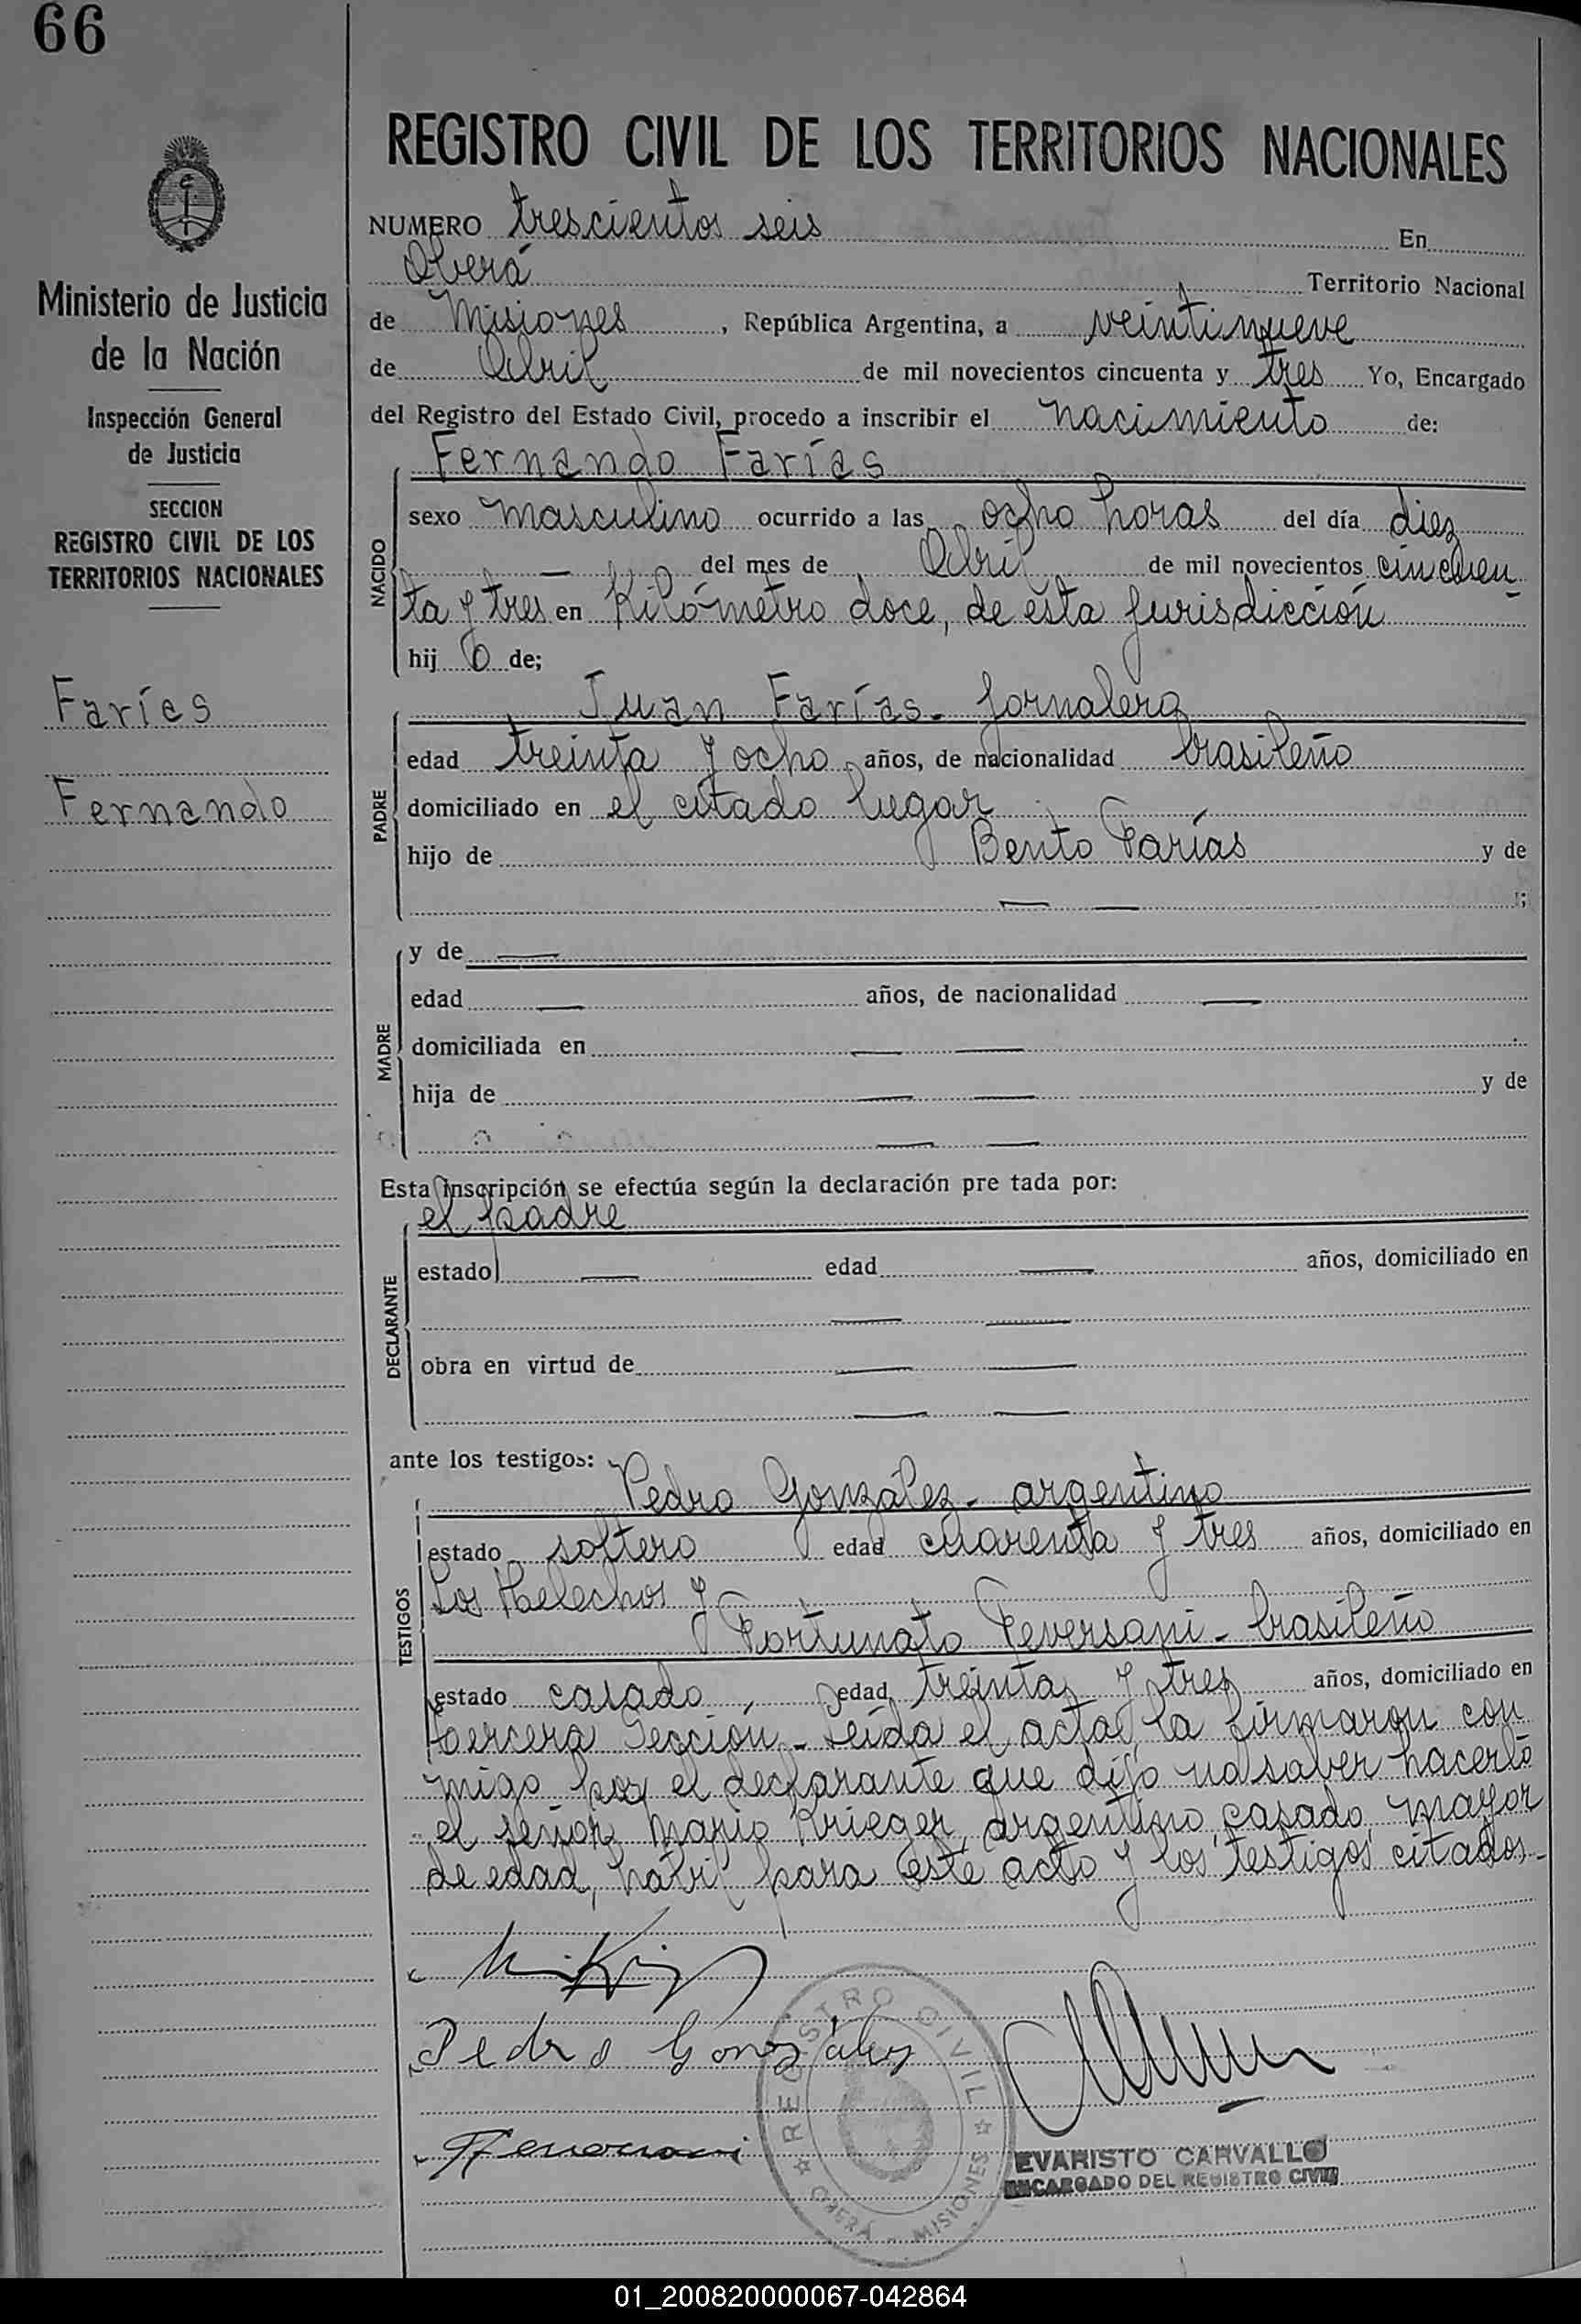 66
REGISTRO CIVIL DE LOS TERRITORIOS NACIONALES
Ministerio de Justicia
de la Nación
Inspección General
de Justicia
SECCION
REGISTRO CIVIL DE LOS
TERRITORIOS NACIONALES
Farías
Fernando
NUMERO trescientos seis En
Oberá Territorio Nacional
de Misiones, República Argentina, a veintinueve
de Abril de mil novecientos cincuenta y tres Yo, Encargado
del Registro del Estado Civil, procedo a inscribir el nacimiento de:
Fernando Farías
NACIDO
sexo masculino ocurrido a las ocho horas del día diez
— del mes de Abril de mil novecientos cincuen-
ta y tres en Kilómetro doce, de esta jurisdicción
hij o de;
PADRE
Juan Farías - jornalero
edad treinta y ocho años, de nacionalidad brasileño
domiciliado en el citado lugar
hijo de Bento Farías y de
— — ;
MADRE
y de —
edad — años, de nacionalidad —
domiciliada en — —
hija de — — y de
— —
Esta inscripción se efectúa según la declaración pre tada por:
el padre
DECLARANTE
estado — edad — años, domiciliado en
— —
obra en virtud de — —
— —
ante los testigos:
TESTIGOS
Pedro González - argentino
estado soltero edad cuarenta y tres años, domiciliado en
Los Helechos y
Fortunato Peversani - brasileño
estado casado, edad treinta y tres años, domiciliado en
tercera Sección - Leída el acta, la firmaron con
migo por el declarante que dijo no saber hacerlo
el señor Mario Krieger, argentino, casado, mayor
de edad, hábil para este acto y los testigos citados.-
Pedro González
REGISTRO CIVIL
OBERÁ - MISIONES
EVARISTO CARVALLO
ENCARGADO DEL REGISTRO CIVIL
01_200820000067-042864